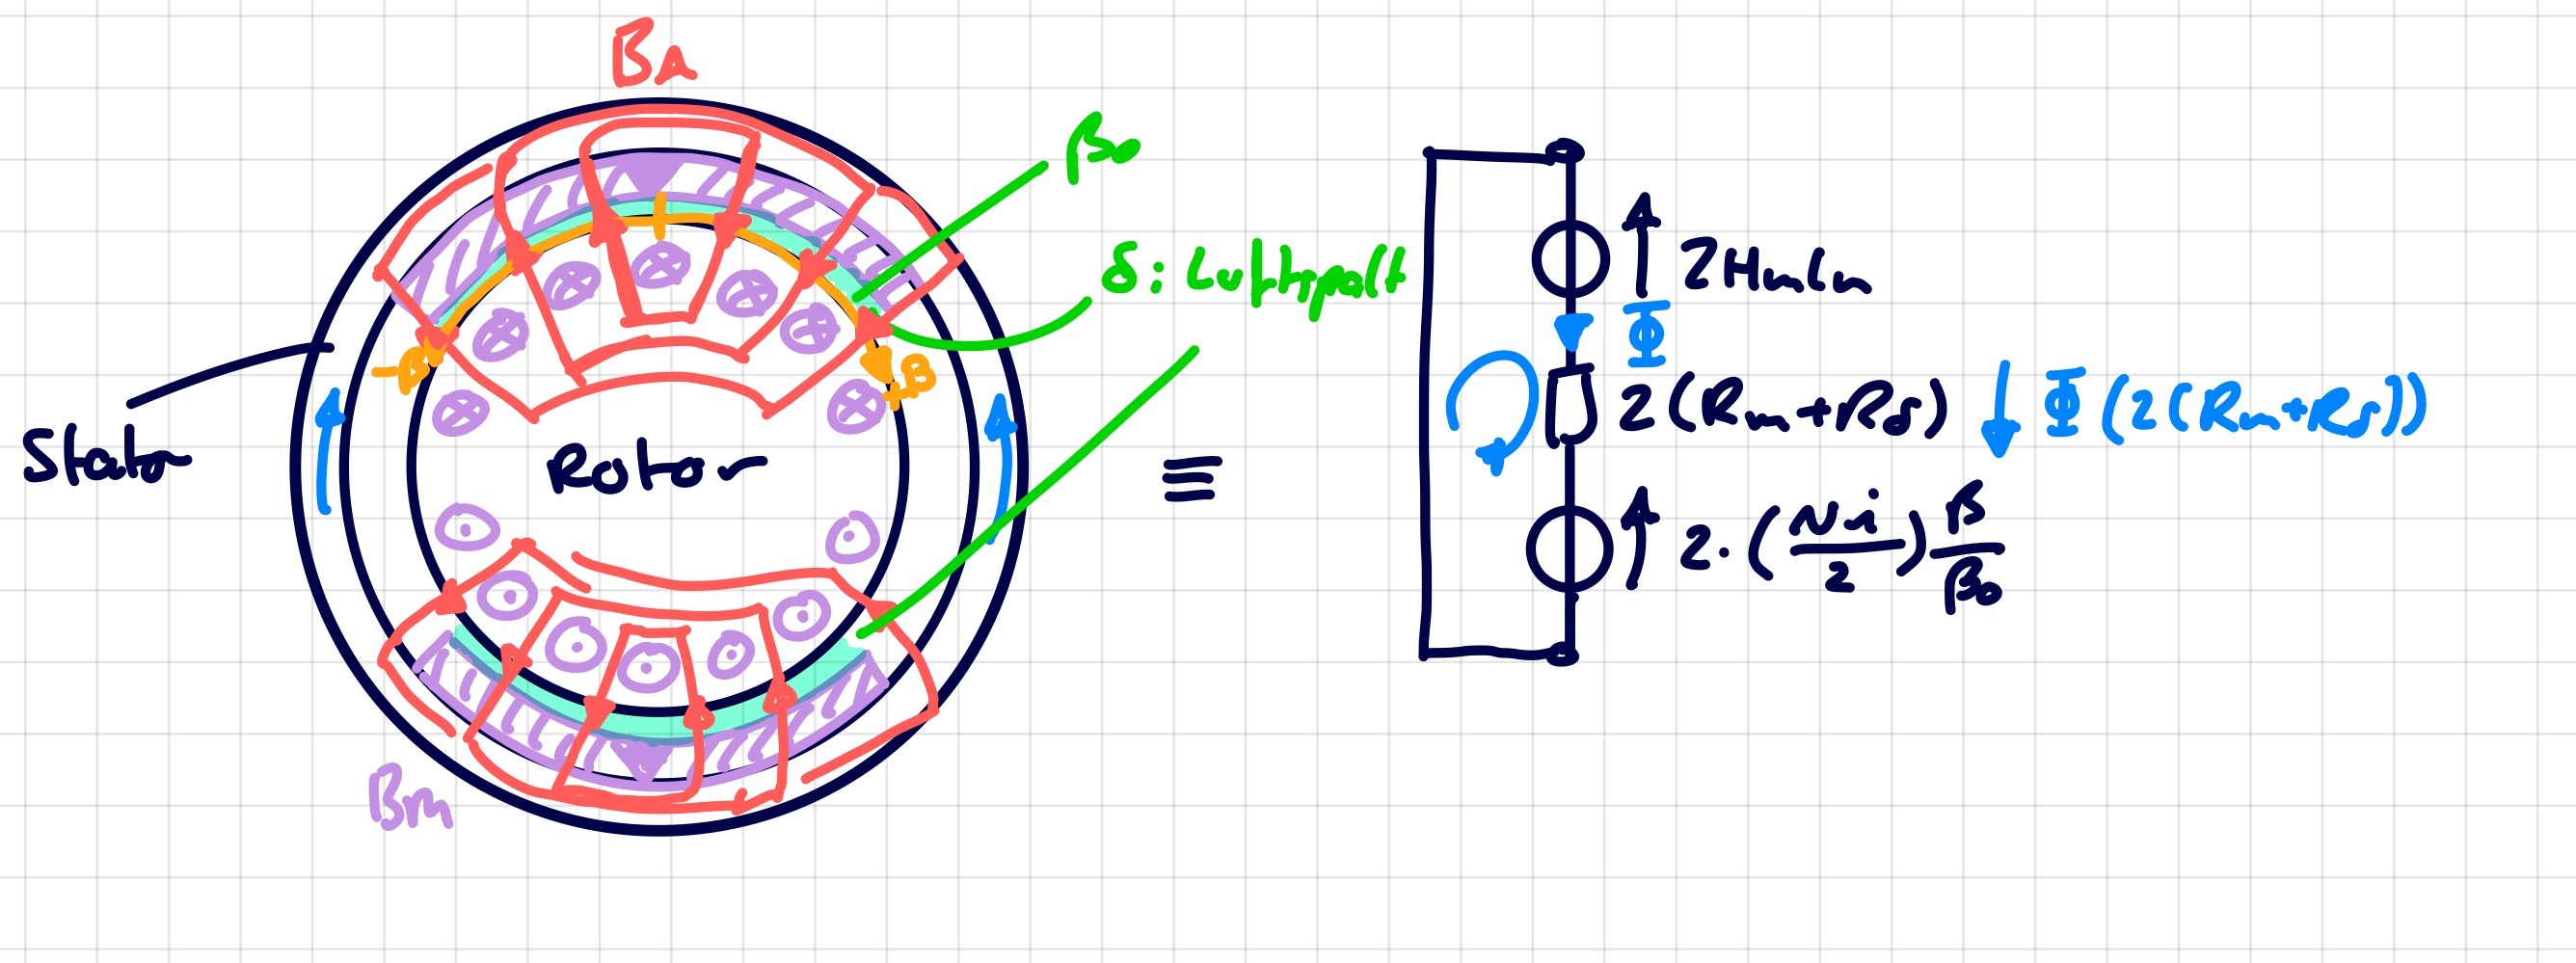 BA
β₀
δ: Luftspalt
-β
+β
Stator
Rotor
Bm
≡
2Hmlm
Φ
2(Rm+Rδ)
Φ(2(Rm+Rδ))
2·(Ni/2)β/β₀